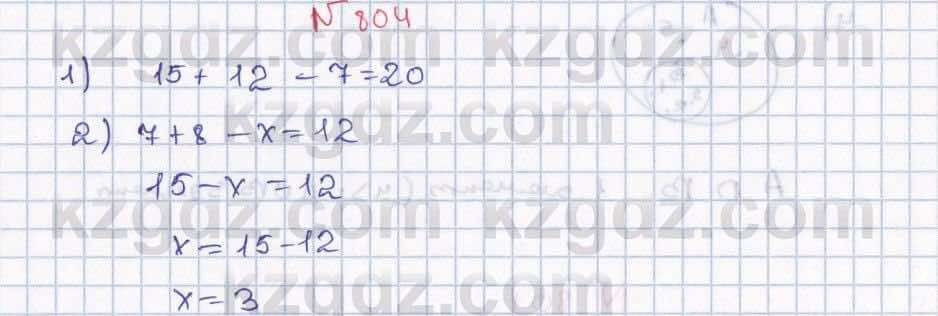 № 804
kzgdz.com kzgdz.com
1) 15 + 12 - 7 = 20
kzgdz.com
2) 7 + 8 - x = 12
15 - x = 12
kzgdz.com kzgdz.com
x = 15 - 12
x = 3
kzgdz.com